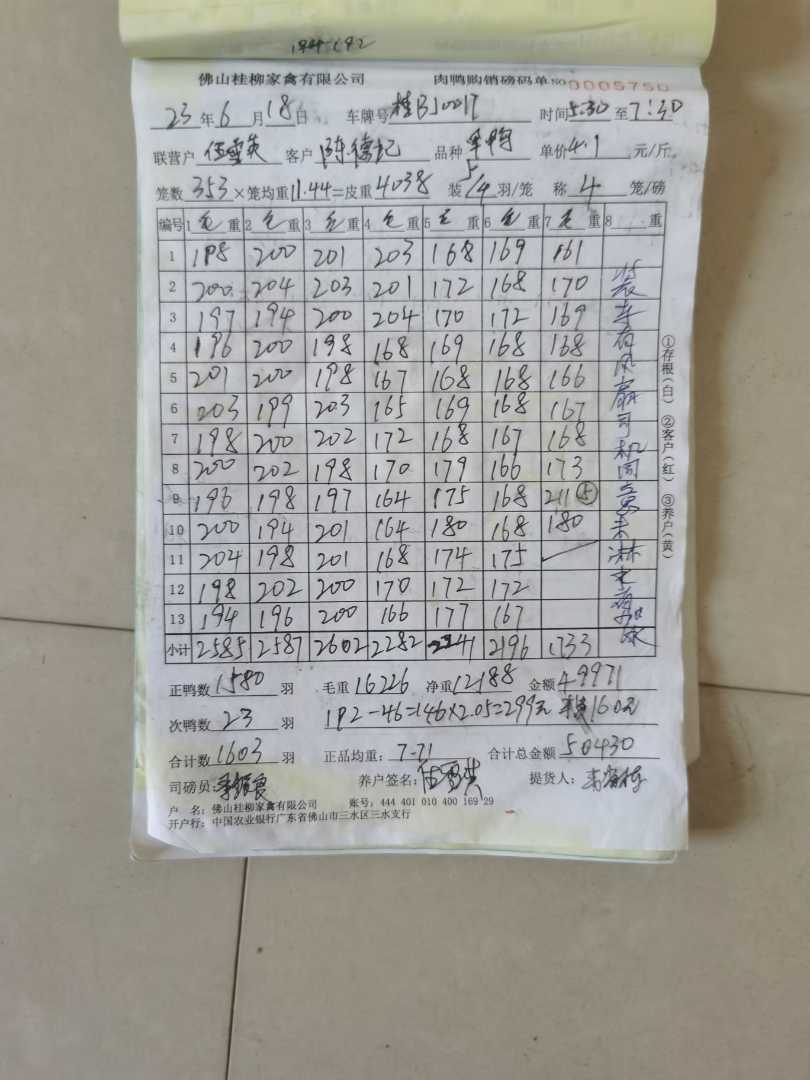 194-192
佛山桂柳家禽有限公司 肉鸭购销磅码单 NO 0005750
23年6月18日 车牌号桂BJ0017 时间5:30至7:30
联营户伍雪英 客户陈德记 品种 单价4.1元/斤
笼数353×笼均重11.44=皮重4038 装5/4羽/笼 称4笼/磅
编号 1毛重 2毛重 3毛重 4毛重 5毛重 6毛重 7毛重 8 重
1 198 200 201 203 168 169 161
2 200 204 203 201 172 168 170
3 197 194 200 204 170 172 169
4 196 200 198 168 169 168 168
5 201 200 198 167 168 168 166
6 203 199 203 165 169 168 167
7 198 200 202 172 168 167 168
8 200 202 198 170 179 166 173
9 196 198 197 164 175 168 211⑤
10 200 194 201 164 180 168 180
11 204 198 201 168 174 175
12 198 202 200 170 172 172
13 194 196 200 166 177 167
小计 2585 2587 2602 2282 2241 2196 1733
装车有风扇司机同意未淋
①存根(白) ②客户(红) ③养户(黄)
正鸭数1580羽 毛重16226 净重12188 金额49971
次鸭数23羽 192-46=146×2.05=299元 160元
合计数1603羽 正品均重:7.71 合计总金额50430
司磅员: 养户签名:伍雪英 提货人:
户 名:佛山桂柳家禽有限公司 账号:444 401 010 400 169 29
开户行:中国农业银行广东省佛山市三水区三水支行